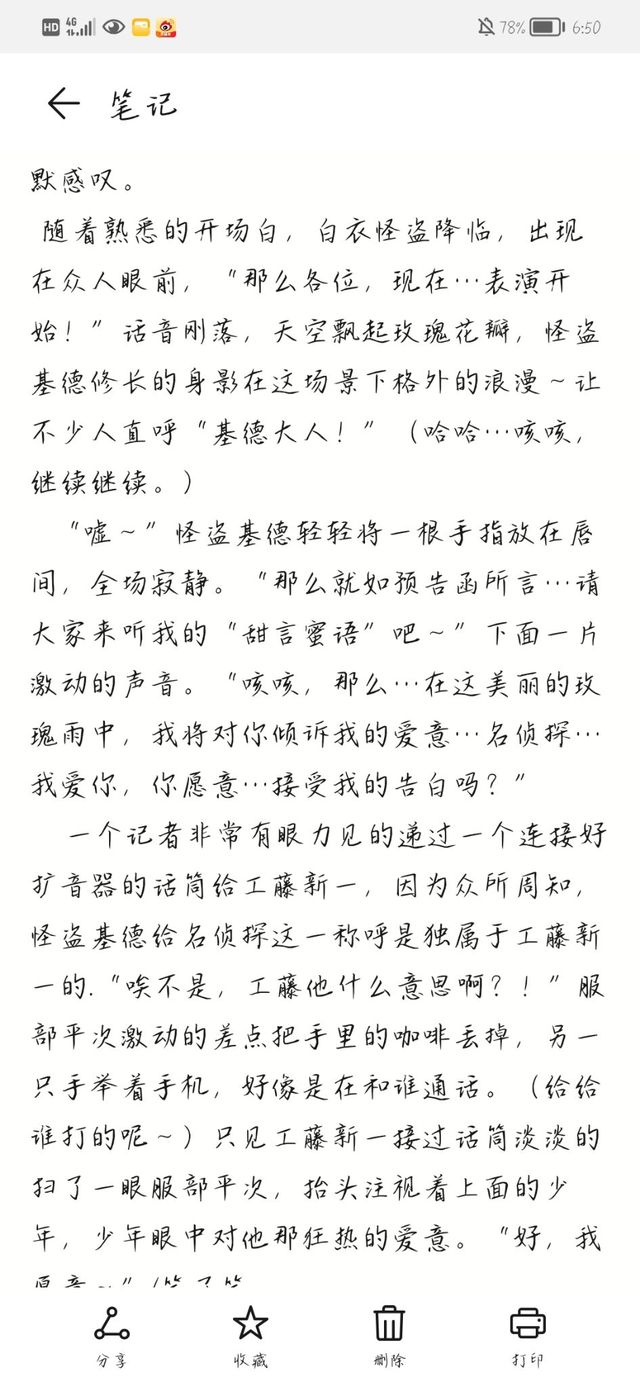 HD 4G 78% 6:50
笔记
默感叹。
随着熟悉的开场白，白衣怪盗降临，出现
在众人眼前，“那么各位，现在…表演开
始！”话音刚落，天空飘起玫瑰花瓣，怪盗
基德修长的身影在这场景下格外的浪漫~让
不少人直呼“基德大人！”（哈哈…咳咳，
继续继续。）
“嘘~”怪盗基德轻轻将一根手指放在唇
间，全场寂静。“那么就如预告函所言…请
大家来听我的“甜言蜜语”吧~”下面一片
激动的声音。“咳咳，那么…在这美丽的玫
瑰雨中，我将对你倾诉我的爱意…名侦探…
我爱你，你愿意…接受我的告白吗？”
一个记者非常有眼力见的递过一个连接好
扩音器的话筒给工藤新一，因为众所周知，
怪盗基德给名侦探这一称呼是独属于工藤新
一的.“唉不是，工藤他什么意思啊？！”服
部平次激动的差点把手里的咖啡丢掉，另一
只手举着手机，好像是在和谁通话。（给给
谁打的呢~）只见工藤新一接过话筒淡淡的
扫了一眼服部平次，抬头注视着上面的少
年，少年眼中对他那狂热的爱意。“好，我
分享 收藏 删除 打印